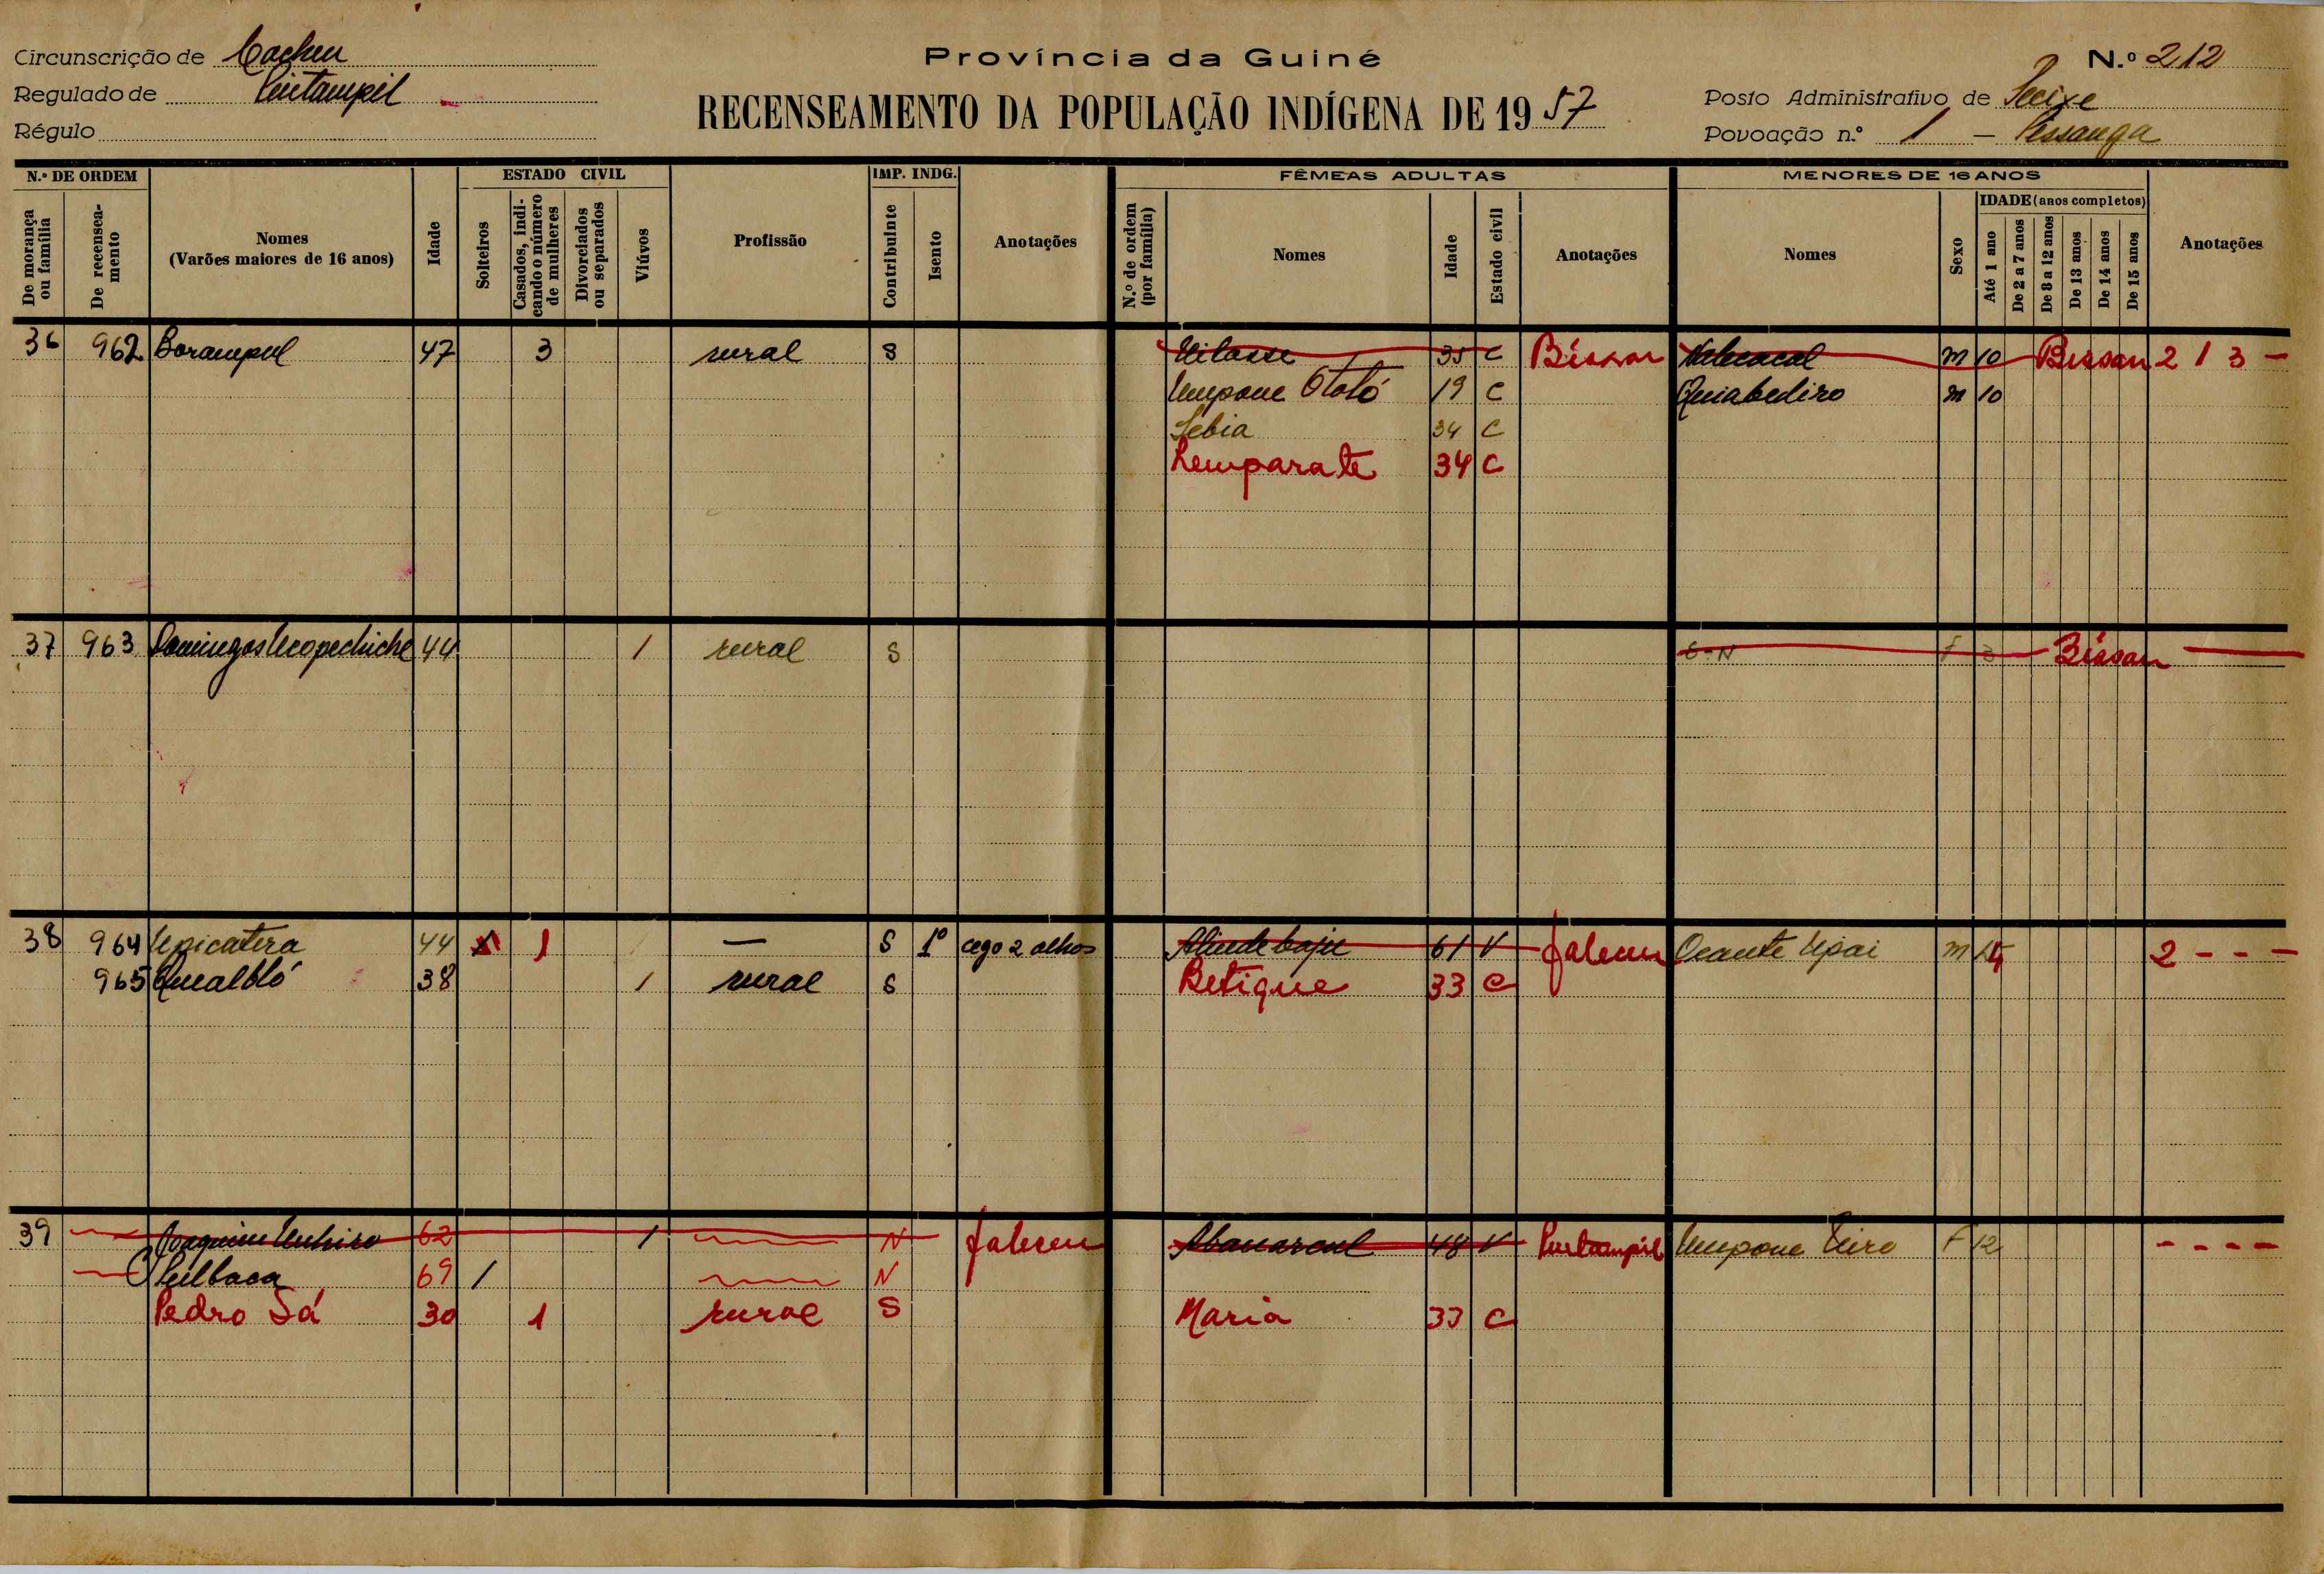 Circunscrição de Cacheu
Regulado de
Régulo
Província da Guiné
RECENSEAMENTO DA POPULAÇÃO INDÍGENA DE 19 57
N.º 212
Posto Administrativo de
Povoação n.º 1 –
N.º DE ORDEM
De morança ou família
De recenseamento
Nomes
(Varões maiores de 16 anos)
Idade
ESTADO CIVIL
Solteiros
Casados, indicando o número de mulheres
Divorciados ou separados
Viúvos
Profissão
IMP. INDG.
Contribuinte
Isento
Anotações
FÊMEAS ADULTAS
N.º de ordem (por família)
Nomes
Idade
Estado civil
Anotações
MENORES DE 16 ANOS
Nomes
Sexo
IDADE (anos completos)
Até 1 ano
De 2 a 7 anos
De 8 a 12 anos
De 13 anos
De 14 anos
De 15 anos
Anotações
36 962 Borampul 47 3 rural S 35 C Bissau m 10 Bissau 2 1 3 –
Umpone Ototó 19 C Quiabediro m 10
Sebia 34 C
34 C
37 963 Domingos 44 1 rural S S-N F 3 Bissau
38 964 Upicatera 44 1 — S 1º cego 2 olhos 61 V faleceu Ocante Upai m 2 - - -
965 38 1 rural S Betique 33 C
39 Joaquim 62 1 N faleceu 48 V Umpone F 12 - - - -
69 / N
Pedro Sá 30 1 rural S Maria 33 C